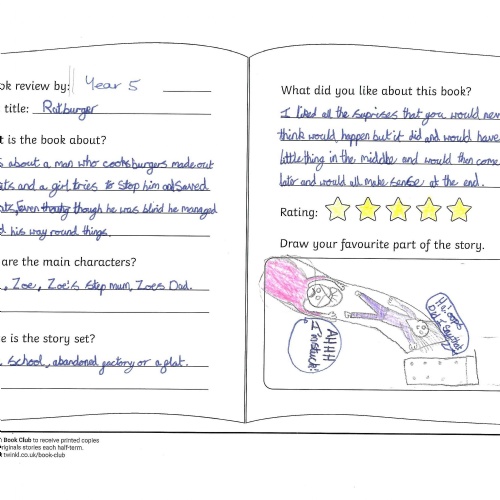 ok review by: Year 5
title: Ratburger
t is the book about?
s about a man who cooks burgers made out
ats and a girl tries to stop him and saved
ats, even though he was blind he managed
d his way round things.
are the main characters?
, Zoe, Zoe's step mum, Zoes Dad.
e is the story set?
school, abandonal factory or a flat.
Book Club to receive printed copies
riginals stories each half-term.
twinkl.co.uk/book-club
What did you like about this book?
I liked all the suprises that you would never
think would happen but it did and would have
little thing in the middle and would then come
later and would all make sense at the end.
Rating:
Draw your favourite part of the story.
AHHH
I'm stuck!
Ha! oops
Did I say that